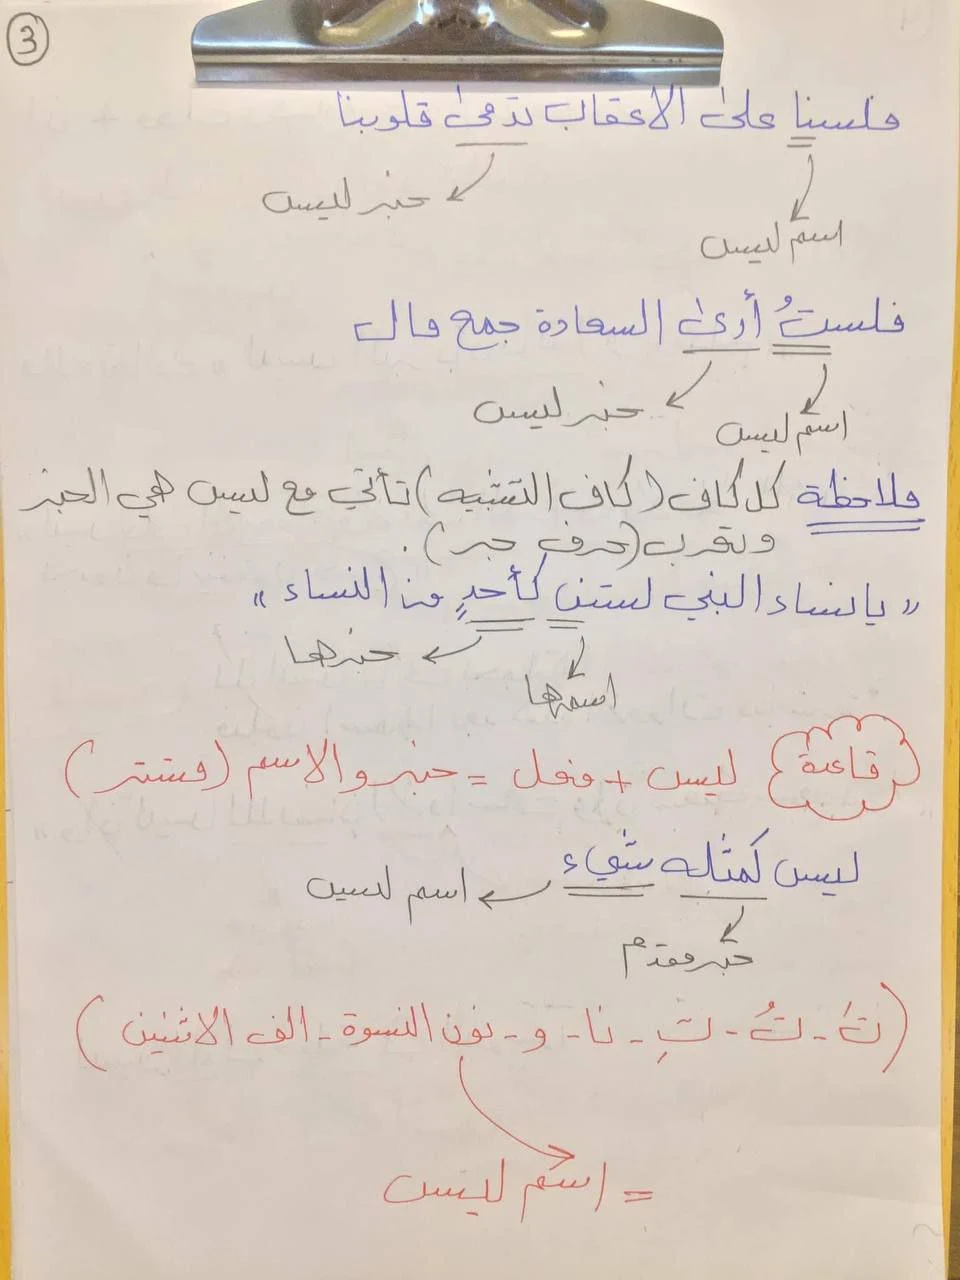 3
فلسنا على الاعقاب تدمى قلوبنا
خبر ليس
اسم ليس
فلستُ أرى السعادة جمع مال
خبر ليس
اسم ليس
ملاحظة كل كاف (كاف التشبيه) تأتي مع ليس هي الخبر
وتعرب (حرف جر).
"يا نساء النبي لستن كأحدٍ من النساء"
خبرها
اسمها
قاعدة ليس + فعل = خبر والاسم (مستتر)
ليس كمثله شيء
اسم ليس
خبر مقدم
(تَ - تُ - تِ - نا - و - نون النسوة - الف الاثنين)
= اسم ليس